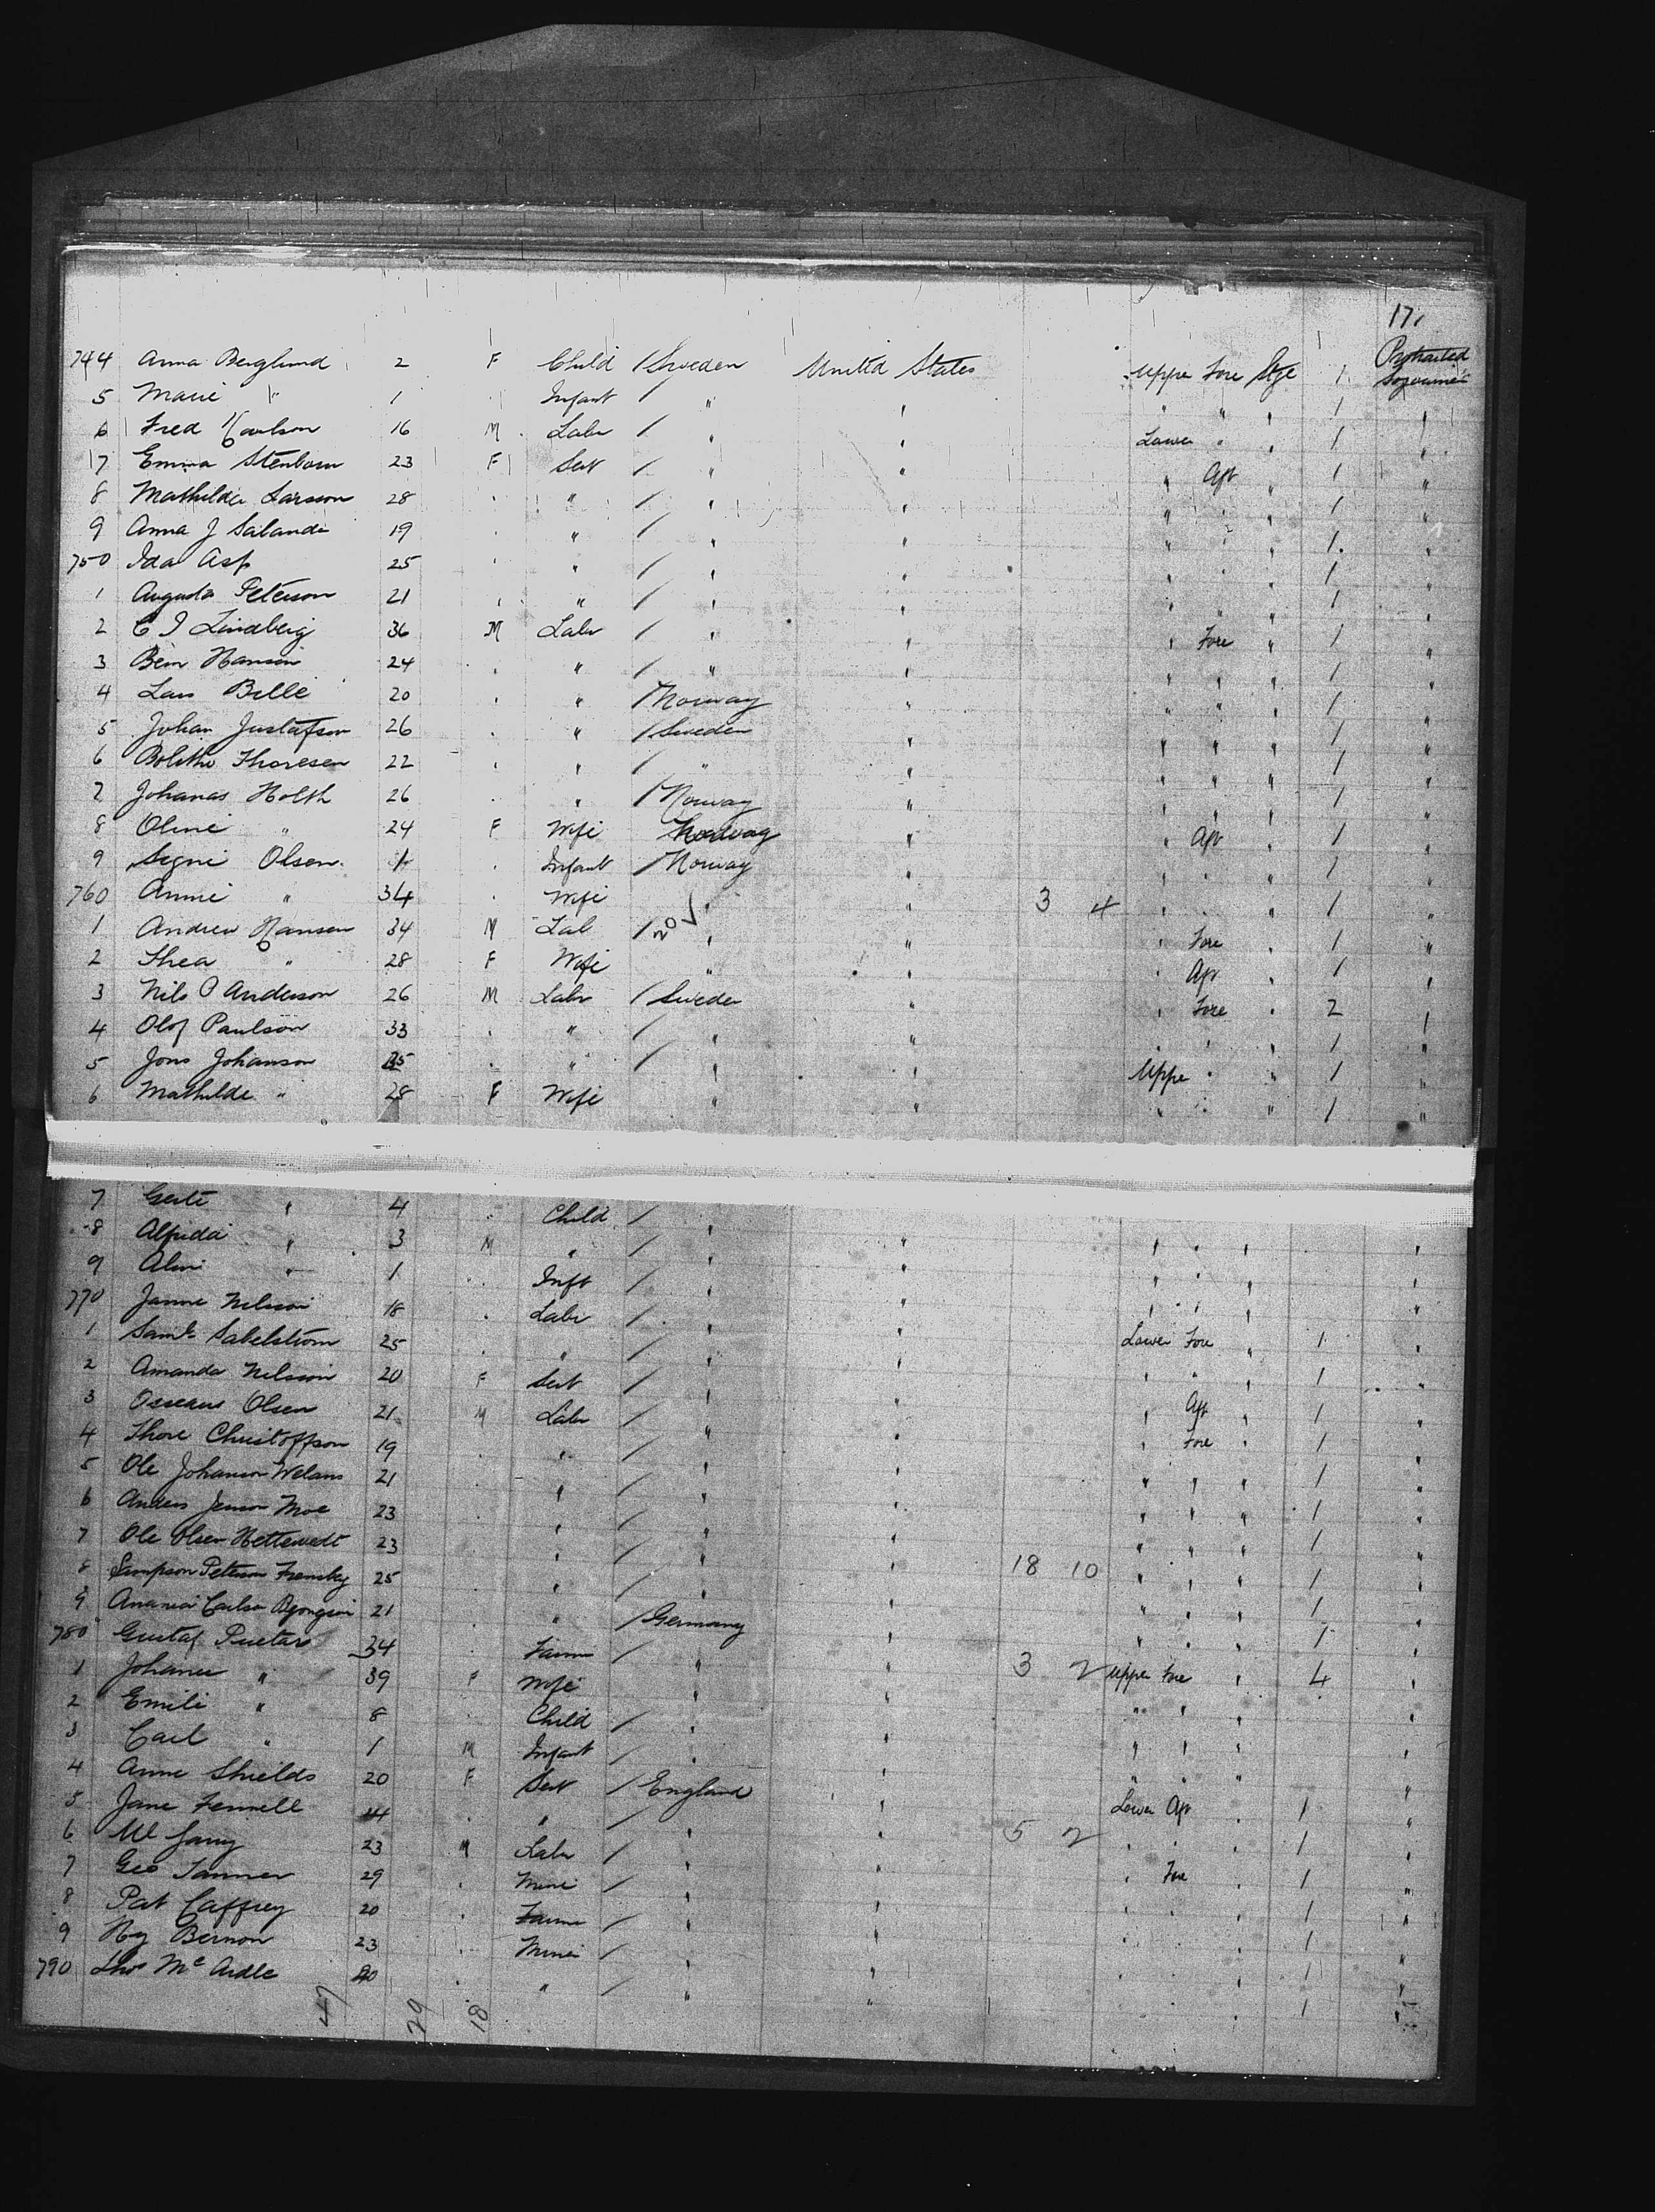 17,
744 Anna Berglund 2 F Child / Sweden United States Upper Fore Stge 1 Protracted Sojourn
5 Marie " 1 Infant / " " " " " 1 "
6 Fred Carlson 16 M Labr / " " Lower " " 1 "
7 Emma Stenborn 23 F Sevt / " " " Aft " 1 "
8 Mathilda Larsson 28 " " / " " " " " 1 "
9 Anna J Salandi 19 " " / " " " " " 1 "
750 Ida Asp 25 " " / " " " " " 1 "
1 Augusta Peterson 21 " " / " " " " " 1 "
2 C J Lindberg 36 M Labr / " " " Fore " 1 "
3 Hansen 24 " " / " " " " " 1 "
4 Lars Bille 20 " " / Norway " " " " 1 "
5 Johan Gustafson 26 " " / Sweden " " " " 1 "
6 Thoresen 22 " " / " " " " " 1 "
7 Johanas Holth 26 " " / Norway " " " " 1 "
8 Oline " 24 F Wife Norway " " Aft " 1 "
9 Signi Olsen 1 " Infant / Norway " " " " 1 "
760 Annie " 34 " Wife " " 3 4 " " " 1 "
1 Andrew Hansen 34 M Lab / " " " Fore " 1 "
2 Thea " 28 F Wife " " " Aft " 1 "
3 Nils P Anderson 26 M Labr / Sweden " " Fore " 2 "
4 Olof Paulson 33 " " / " " " " " 1 "
5 Jons Johanson 25 " " / " " Uppe " " 1 "
6 Mathilde " 28 F Wife " " " " " 1 "
7 Gerti " 4 " Child / " " " " " "
8 Alfrida " 3 M " / " " " " " "
9 " 1 " Inft / " " " " " "
770 Janne Nilsson 18 " Labr / " " Lower Fore " 1 "
1 Saml Sabelstrom 25 " " / " " " " " 1 "
2 Amanda Nilsson 20 F Sevt / " " " Aft " 1 "
3 Olsen 21 M Labr / " " " Fore " 1 "
4 Thore Christoffson 19 " " / " " " " " 1 "
5 Ole Johanson 21 " " / " " " " " 1 "
6 Anders Jenson Moe 23 " " / " " " " " 1 "
7 Ole Olsen 23 " " / " " 18 10 " " " 1 "
8 Simpson Peterson 25 " " / " " " " " 1 "
9 Carlson 21 " " / Germany " " " " 1 "
780 Gustaf 34 " Farm / " " 3 2 Upper Fore " 4 "
1 Johanna " 39 F Wife " " " " " "
2 Emili " 8 " Child / " " " " " "
3 Carl " 1 M Infant / " " " " " "
4 Anne Shields 20 F Sevt / England " Lower Aft " 1 "
5 Jane Fennell " / " " 5 2 " " " 1 "
6 Wl 23 M Labr / " " " Fore " 1 "
7 Geo Tanner 29 " Mine / " " " " " 1 "
8 Pat Caffrey 20 " Farme / " " " " " 1 "
9 Hy Bernon 23 " Mine / " " " " " 1 "
790 Thos McArdle 20 " " / " " " " " 1 "
47 29 18